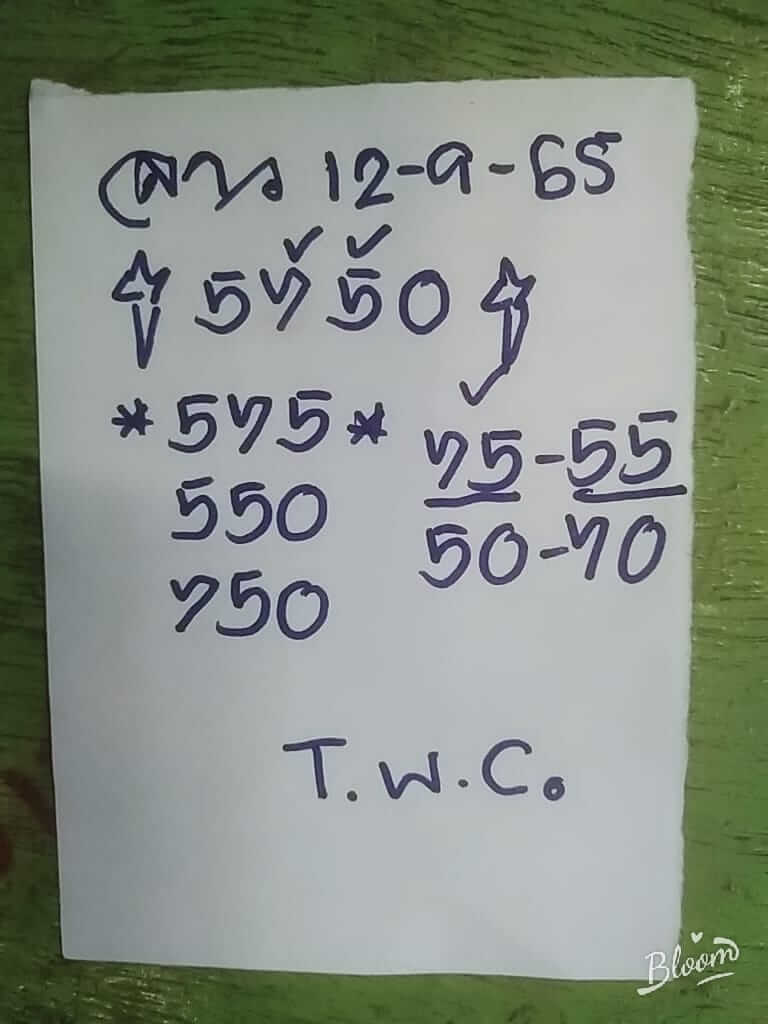 ลาว 12-9-65
5750
*575*
75-55
550
50-70
750
T.W.C.
Bloom